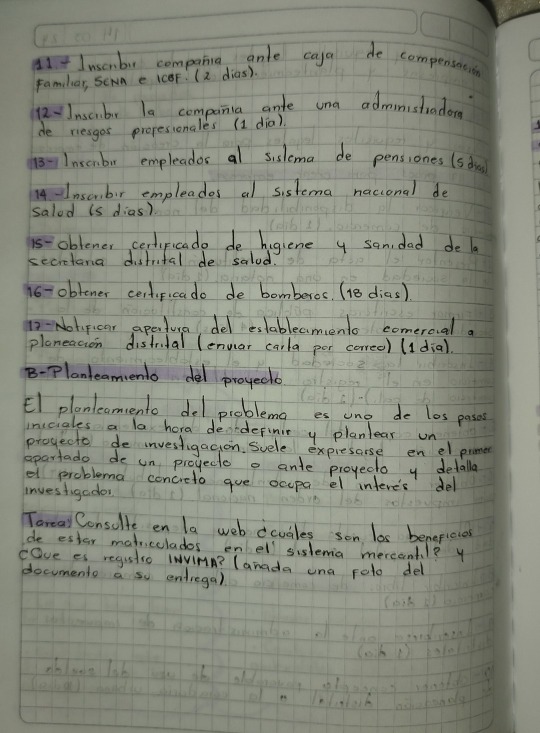 11- Inscribir compañia ante caja de compensación
Familiar, SCNA e ICBF. (2 dias).
12- Inscribir la compañia ante una administradora
de riesgos profesionales (1 dia).
13- Inscribir empleados al sistema de pensiones (5 dias)
14- Inscribir empleados al sistema nacional de
salud (5 dias)
15- Obtener certificado de higiene y sanidad de la
secretaria distrital de salud.
16- obtener certificado de bomberos. (18 dias).
17- Notificar apertura del establecimiento comercial a
planeación distrital (enviar carta por correo) (1 dia).
B- Planteamiento del proyecto
El planteamiento del problema es uno de los pasos
iniciales a la hora de definir y plantear un
proyecto de investigación. Suele expresarse en el primer
apartado de un proyecto o ante proyecto y detalla
el problema concreto que ocupa el interés del
investigador.
Tarea: Consulte en la web ¿cuáles son los beneficios
de estar matriculados en el sistema mercantil? y
¿Que es registro INVIMA? (añada una foto del
documento a su entrega).